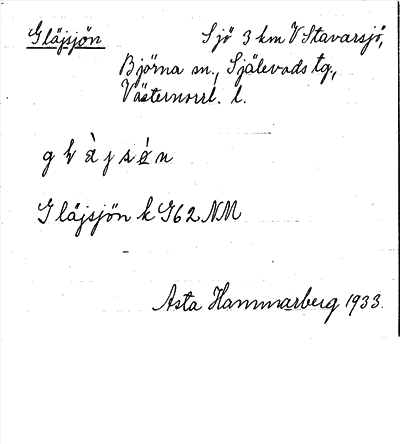 Gläjsjön Sjö 3 km V Stavarsjö,
Björna sn., Själevads tg.,
Västernorrl. l.
Gläjsjön k G62 NM
Asta Hammarberg 1933.